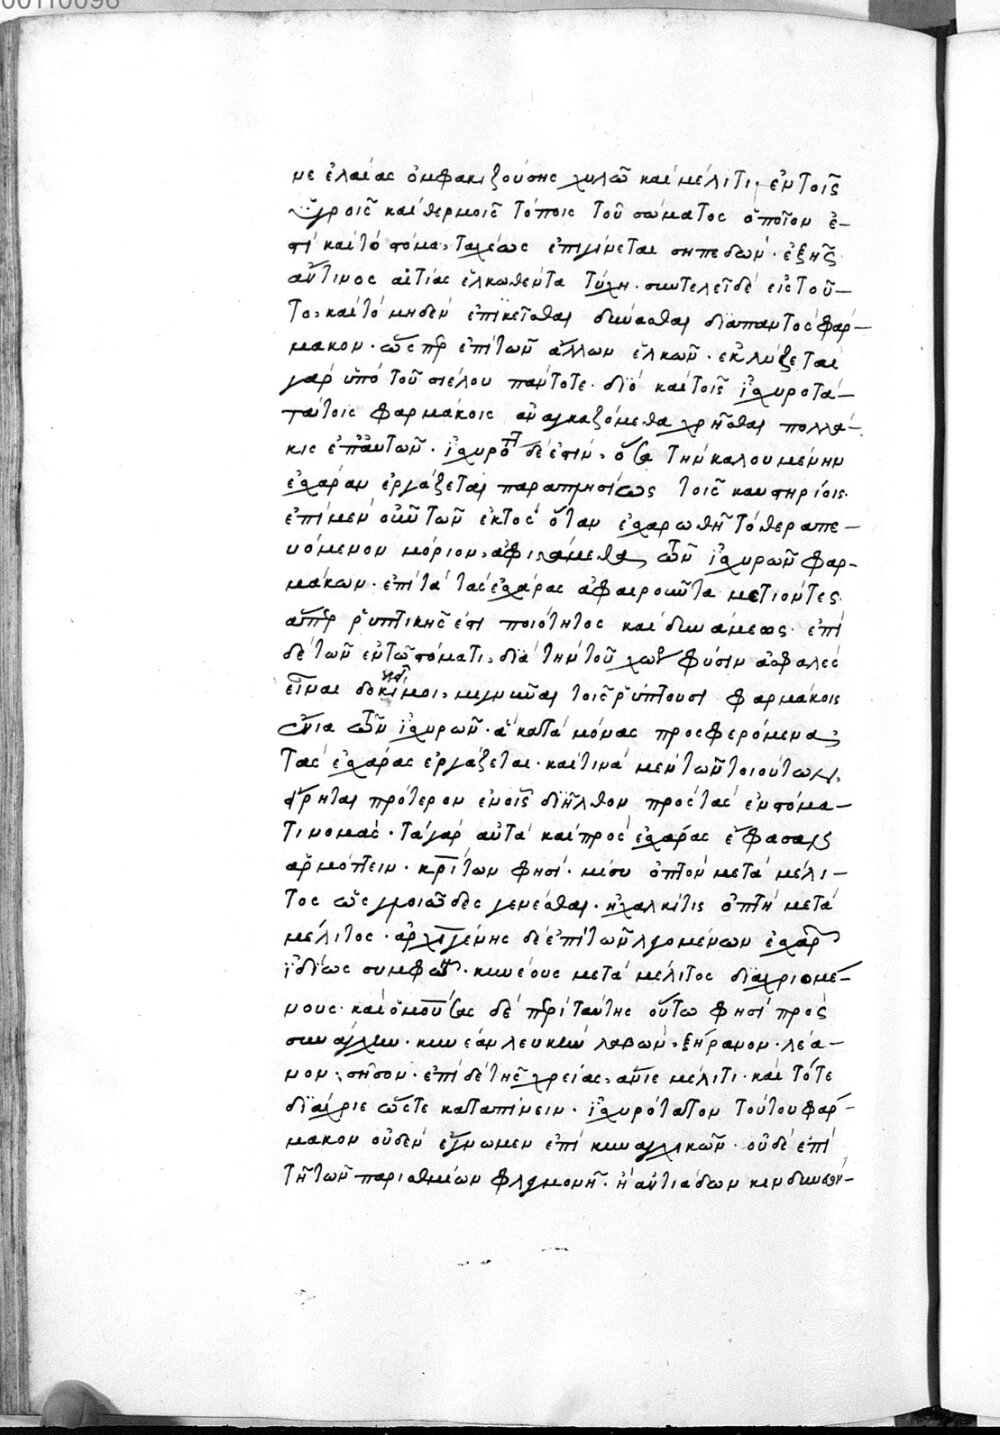 με ἐλαίας ὀμφακιζούσης χυλῶ καὶ μέλιτι. ἐν τοῖς
ὑγροῖς καὶ θερμοῖς τόποις τοῦ σώματος ὁποῖον ἐ-
στὶ καὶ τὸ στόμα, ταχέως ἐπιγίνεται σηπεδών. ἐξ ἧς
ἄν τινος αἰτίας ἑλκωθέντα τύχη. συντελεῖ δὲ εἰς τοῦ-
το, καὶ τὸ μηδὲν ἐπικεῖσθαι δύνασθαι διαπαντὸς φάρ-
μακον. ὥσπερ ἐπὶ τῶν ἄλλων ἑλκῶν. ἐκκλύζεται
γὰρ ὑπὸ τοῦ σιέλου πάντοτε. διὸ καὶ τοῖς ἰσχυροτά-
τοις φαρμάκοις ἀναγκαζόμεθα χρῆσθαι πολλά-
κις ἐπ' αὐτῶν. ἰσχυρὸν δέ ἐστιν, ὅσα τὴν καλουμένην
ἐσχάραν ἐργάζεται παραπλησίως τοῖς καυτηρίοις.
ἐπὶ μὲν οὖν τῶν ἐκτὸς ὅταν ἐσχαρωθῆ τὸ θεραπευ-
όμενον μόριον, ἀφιστάμεθα τῶν ἰσχυρῶν φαρ-
μάκων. ἐπὶ τὰ τὰς ἐσχάρας ἀφαιροῦντα μετιόντες
ἅπερ ῥυπτικῆς ἐστι ποιότητος καὶ δυνάμεως. ἐπὶ
δὲ τῶν ἐν τῶ στόματι, διὰ τὴν τοῦ χωρίου φύσιν ἀσφαλὲς
εἶναι δοκεῖ μοι, μιγνύναι τοῖς ῥύπτουσι φαρμάκοις
ἔνια τῶν ἰσχυρῶν. ἃ κατὰ μόνας προσφερόμενα
τὰς ἐσχάρας ἐργάζεται. καί τινα μὲν τῶν τοιούτων
εἴρηται πρότερον ἐν οἷς διῆλθον πρὸς τὰς ἐν στόμα-
τι νομάς. τὰ γὰρ αὐτὰ καὶ πρὸς ἐσχάρας ἔφασαν
ἁρμόττειν. κρίτων φησί. μίσυ ὀπτὸν μετὰ μέλι-
τος ὡς γλοιῶδες γενέσθαι. ἢ χαλκῖτις ὀπτὴ μετὰ
μέλιτος. ἀρχιγένης δὲ ἐπὶ τῶν λεγομένων ἐσχαρῶν
ἰδίως συμφωνεῖ. κυνείους μετὰ μέλιτος διαχριομέ-
νους. καὶ ὁμοῦσας δὲ περὶ ταύτης οὕτω φησὶ πρὸς
συνάγχην. κυνείαν λευκὴν λαβὼν, ξήρανον, λέα-
νον, σῆσον. ἐπὶ δὲ τῆς χρείας, ἄνιε μέλιτι. καὶ τότε
διάχριε ὥστε καταπίνειν. ἰσχυρότατον τούτου φάρ-
μακον οὐδὲν ἔγνωμεν ἐπὶ κυναγχικῶν. οὐδὲ ἐπὶ
τῆ τῶν παρισθμίων φλεγμονῆ. ἢ ἀντιάδων κινδυνευόν-